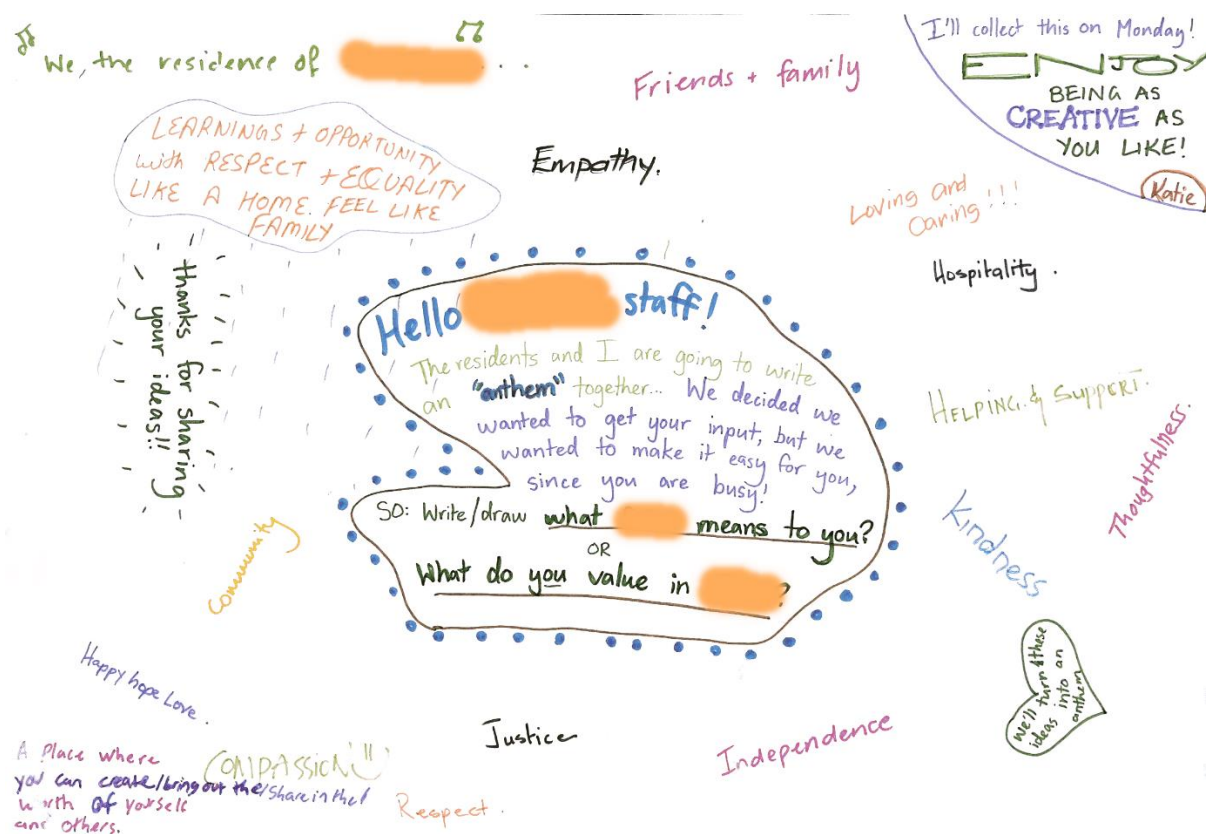 We, the residence of ...
Friends + family
I'll collect this on Monday!
ENJOY
BEING AS
CREATIVE AS
YOU LIKE!
Katie
LEARNINGS + OPPORTUNITY
with RESPECT + EQUALITY
LIKE A HOME. FEEL LIKE
FAMILY
Empathy.
Loving and
Caring!!!
Hospitality.
thanks for sharing
your ideas!!
Hello staff!
The residents and I are going to write
an "anthem" together... We decided we
wanted to get your input, but we
wanted to make it easy for you,
since you are busy!
SO: Write/draw what means to you?
OR
What do you value in ?
HELPING & SUPPORT.
Thoughtfulness.
Kindness
Community
We'll turn these
ideas into an
anthem
Happy hope Love.
Justice
Independence
COMPASSION
A Place where
you can create/bring out the/share in the/
worth of yourself
and others.
Respect.